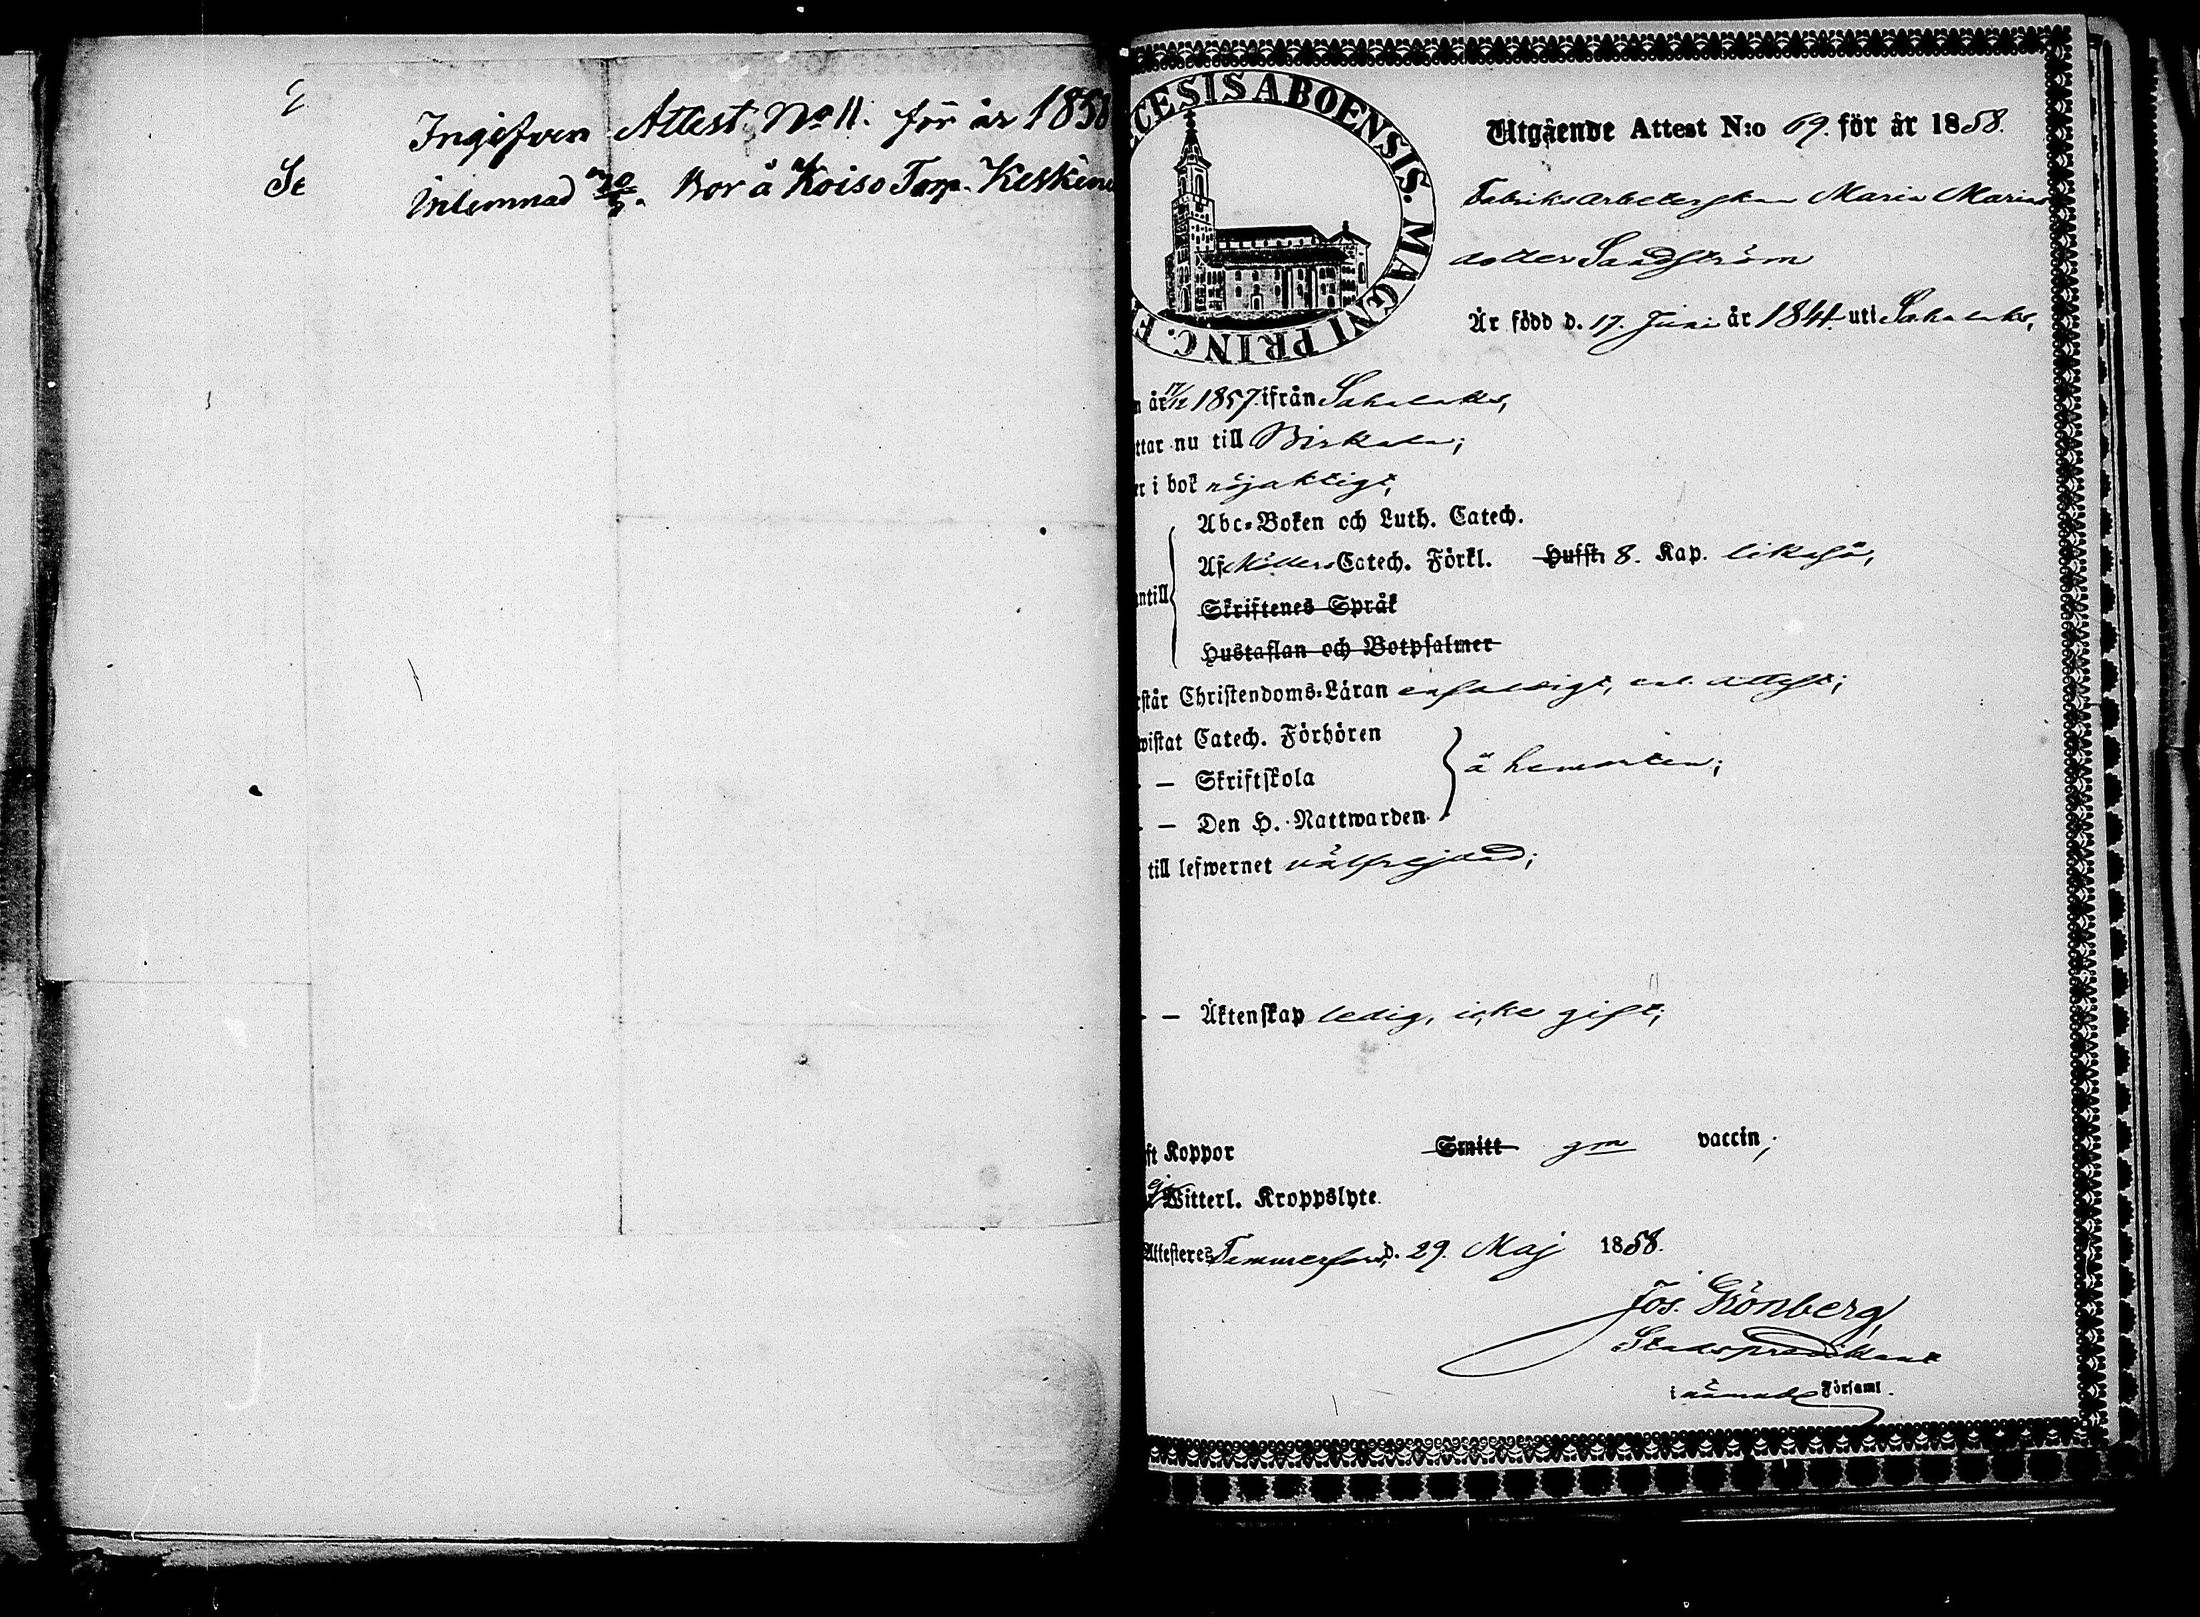 Ingifven Attest No 11. för år 1858
inlemnad Bor å Koiso Torp. Keskine
Se
CESIS ABOENSIS. MAGNI PRINC. F
Utgående Attest N:o 69. för år 1858.
Fabriksarbeterskan Maria Maria
dotter Sandström
Är född d. 17. Juni år 1841. uti Sahalaks,
n år 17/12 1857. ifrån Sahalaks,
ttar nu till Birkala;
er i bok nöjaktigt,
Abc-Boken och Luth. Catech.
Af Möllers Catech. Förkl. Hufst. 8. Kap. likaså,
antill
Skriftenes Språk
Hustaflan och Botpsalmer
rstår Christendoms-Läran enfaldigt, enl. attest;
wistat Catech. Förhören
— Skriftskola
å hemorten;
— Den H. Nattwarden
till lefwernet välfrejdad;
— Äktenskap ledig, icke gift;
ft Koppor Smitt gm vaccin;
ej Witterl. Kroppslyte
Attesteres Tammerfors, d. 29. Maj 1858.
Jos. Grönberg,
Stadspredikant
i nämnde Församl.